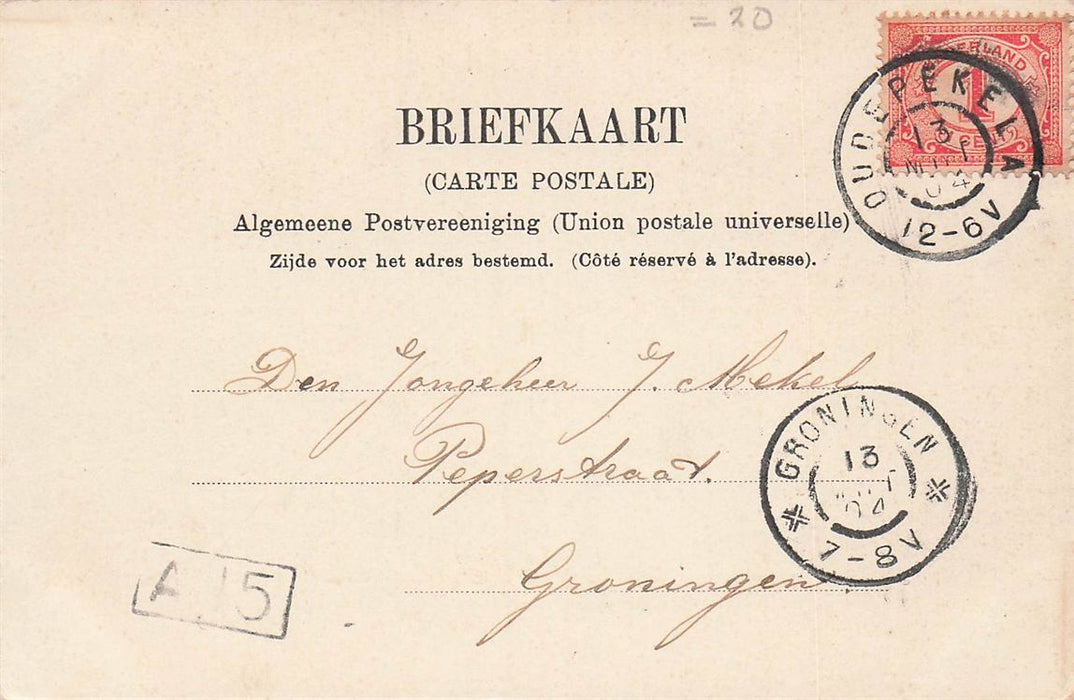 = 20
NEDERLAND
1
CENT
OUDE PEKELA
13
04
12-6V
BRIEFKAART
(CARTE POSTALE)
Algemeene Postvereeniging (Union postale universelle)
Zijde voor het adres bestemd. (Côté réservé à l'adresse).
Den Jongeheer J. Mekel
Peperstraat.
Groningen
GRONINGEN
13
04
7-8V
A 15